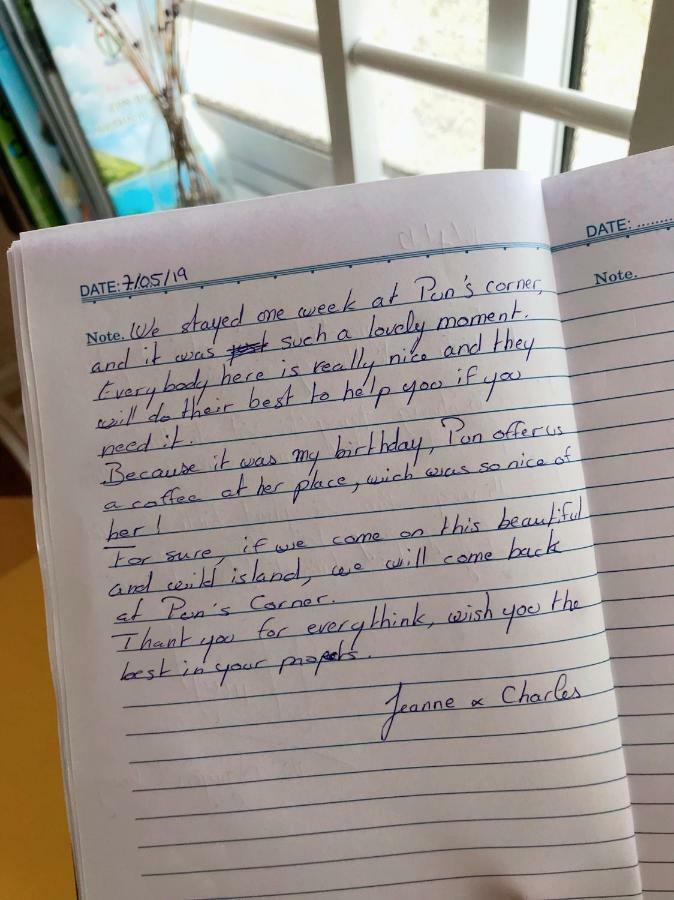 DATE: 7/05/19
Note. We stayed one week at Pun's corner,
and it was such a lovely moment.
Everybody here is really nice and they
will do their best to help you if you
need it.
Because it was my birthday, Pun offer us
a coffee at her place, wich was so nice of
her!
For sure, if we come on this beautiful
and wild island, we will come back
at Pun's Corner.
Thank you for everythink, wish you the
best in your projects.
Jeanne & Charles
DATE: ........
Note.